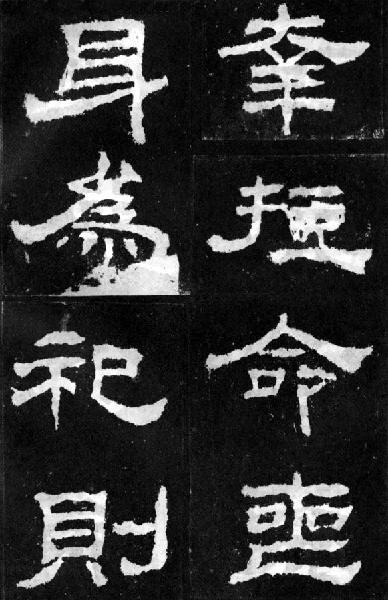 幸短命喪
身為祀則